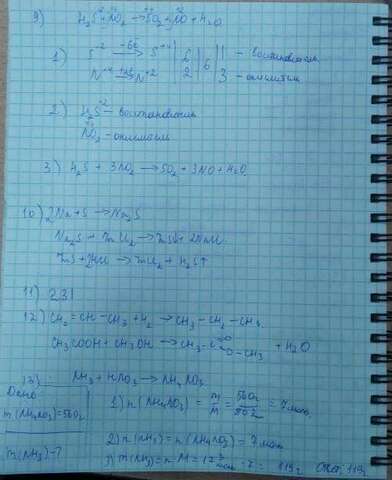 9) H₂S⁻² + N⁺⁴O₂ → S⁺⁴O₂ + N⁺²O + H₂O
1) S⁻² –6e̅→ S⁺⁴ | 6 | 6 | 1 – восстановитель
N⁺⁴ +2e̅→ N⁺² | 2 | | 3 – окислитель
2) H₂S⁻² – восстановитель
N⁺⁴O₂ – окислитель
3) H₂S + 3NO₂ → SO₂ + 3NO + H₂O
10) 2Na + S → Na₂S
Na₂S + ZnCl₂ → ZnS↓ + 2NaCl
ZnS + 2HCl → ZnCl₂ + H₂S↑
11) 231
12) CH₂ = CH – CH₃ + H₂ → CH₃ – CH₂ – CH₃
CH₃COOH + CH₃OH → CH₃ – C O O – CH₃ + H₂O
13) NH₃ + HNO₃ → NH₄NO₃
Дано:
m(NH₄NO₃) = 560г
m(NH₃) – ?
1) n(NH₄NO₃) = m/M = 560г/80г = 7 моль
2) n(NH₃) = n(NH₄NO₃) = 7 моль
3) m(NH₃) = n · M = 17 г/моль · 7 = 119г Ответ: 119г